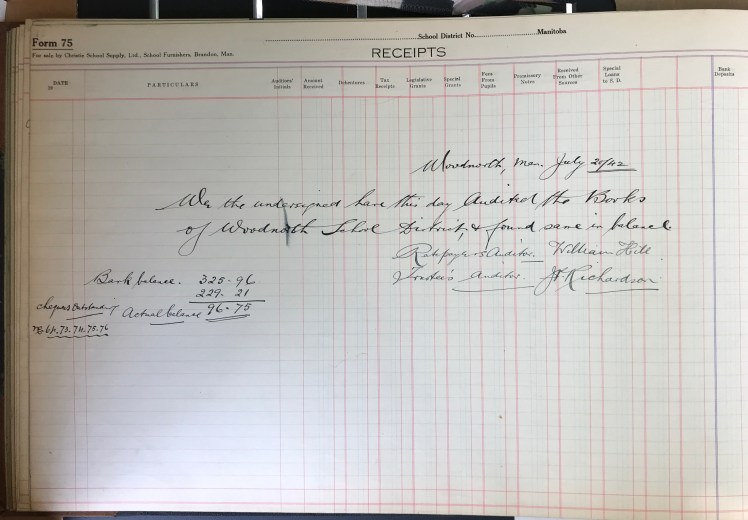 Form 75
School District No. Manitoba
For sale by Christie School Supply, Ltd., School Furnishers, Brandon, Man.
RECEIPTS
DATE 19
PARTICULARS
Auditors' Initials
Amount Received
Debentures
Tax Receipts
Legislative Grants
Special Grants
Fees From Pupils
Promissory Notes
Received From Other Sources
Special Loans to S. D.
Bank Deposits
Woodnorth, Man. July 20/42
We the undersigned have this day Audited the Books
of Woodnorth School District, & found same in balance
Ratepayers Auditor. William Hill
Trustee's Auditor. Richardson
Bank balance. 325-96
229-21
Cheques Outstanding
Actual balance 96-75
73. 74. 75. 76